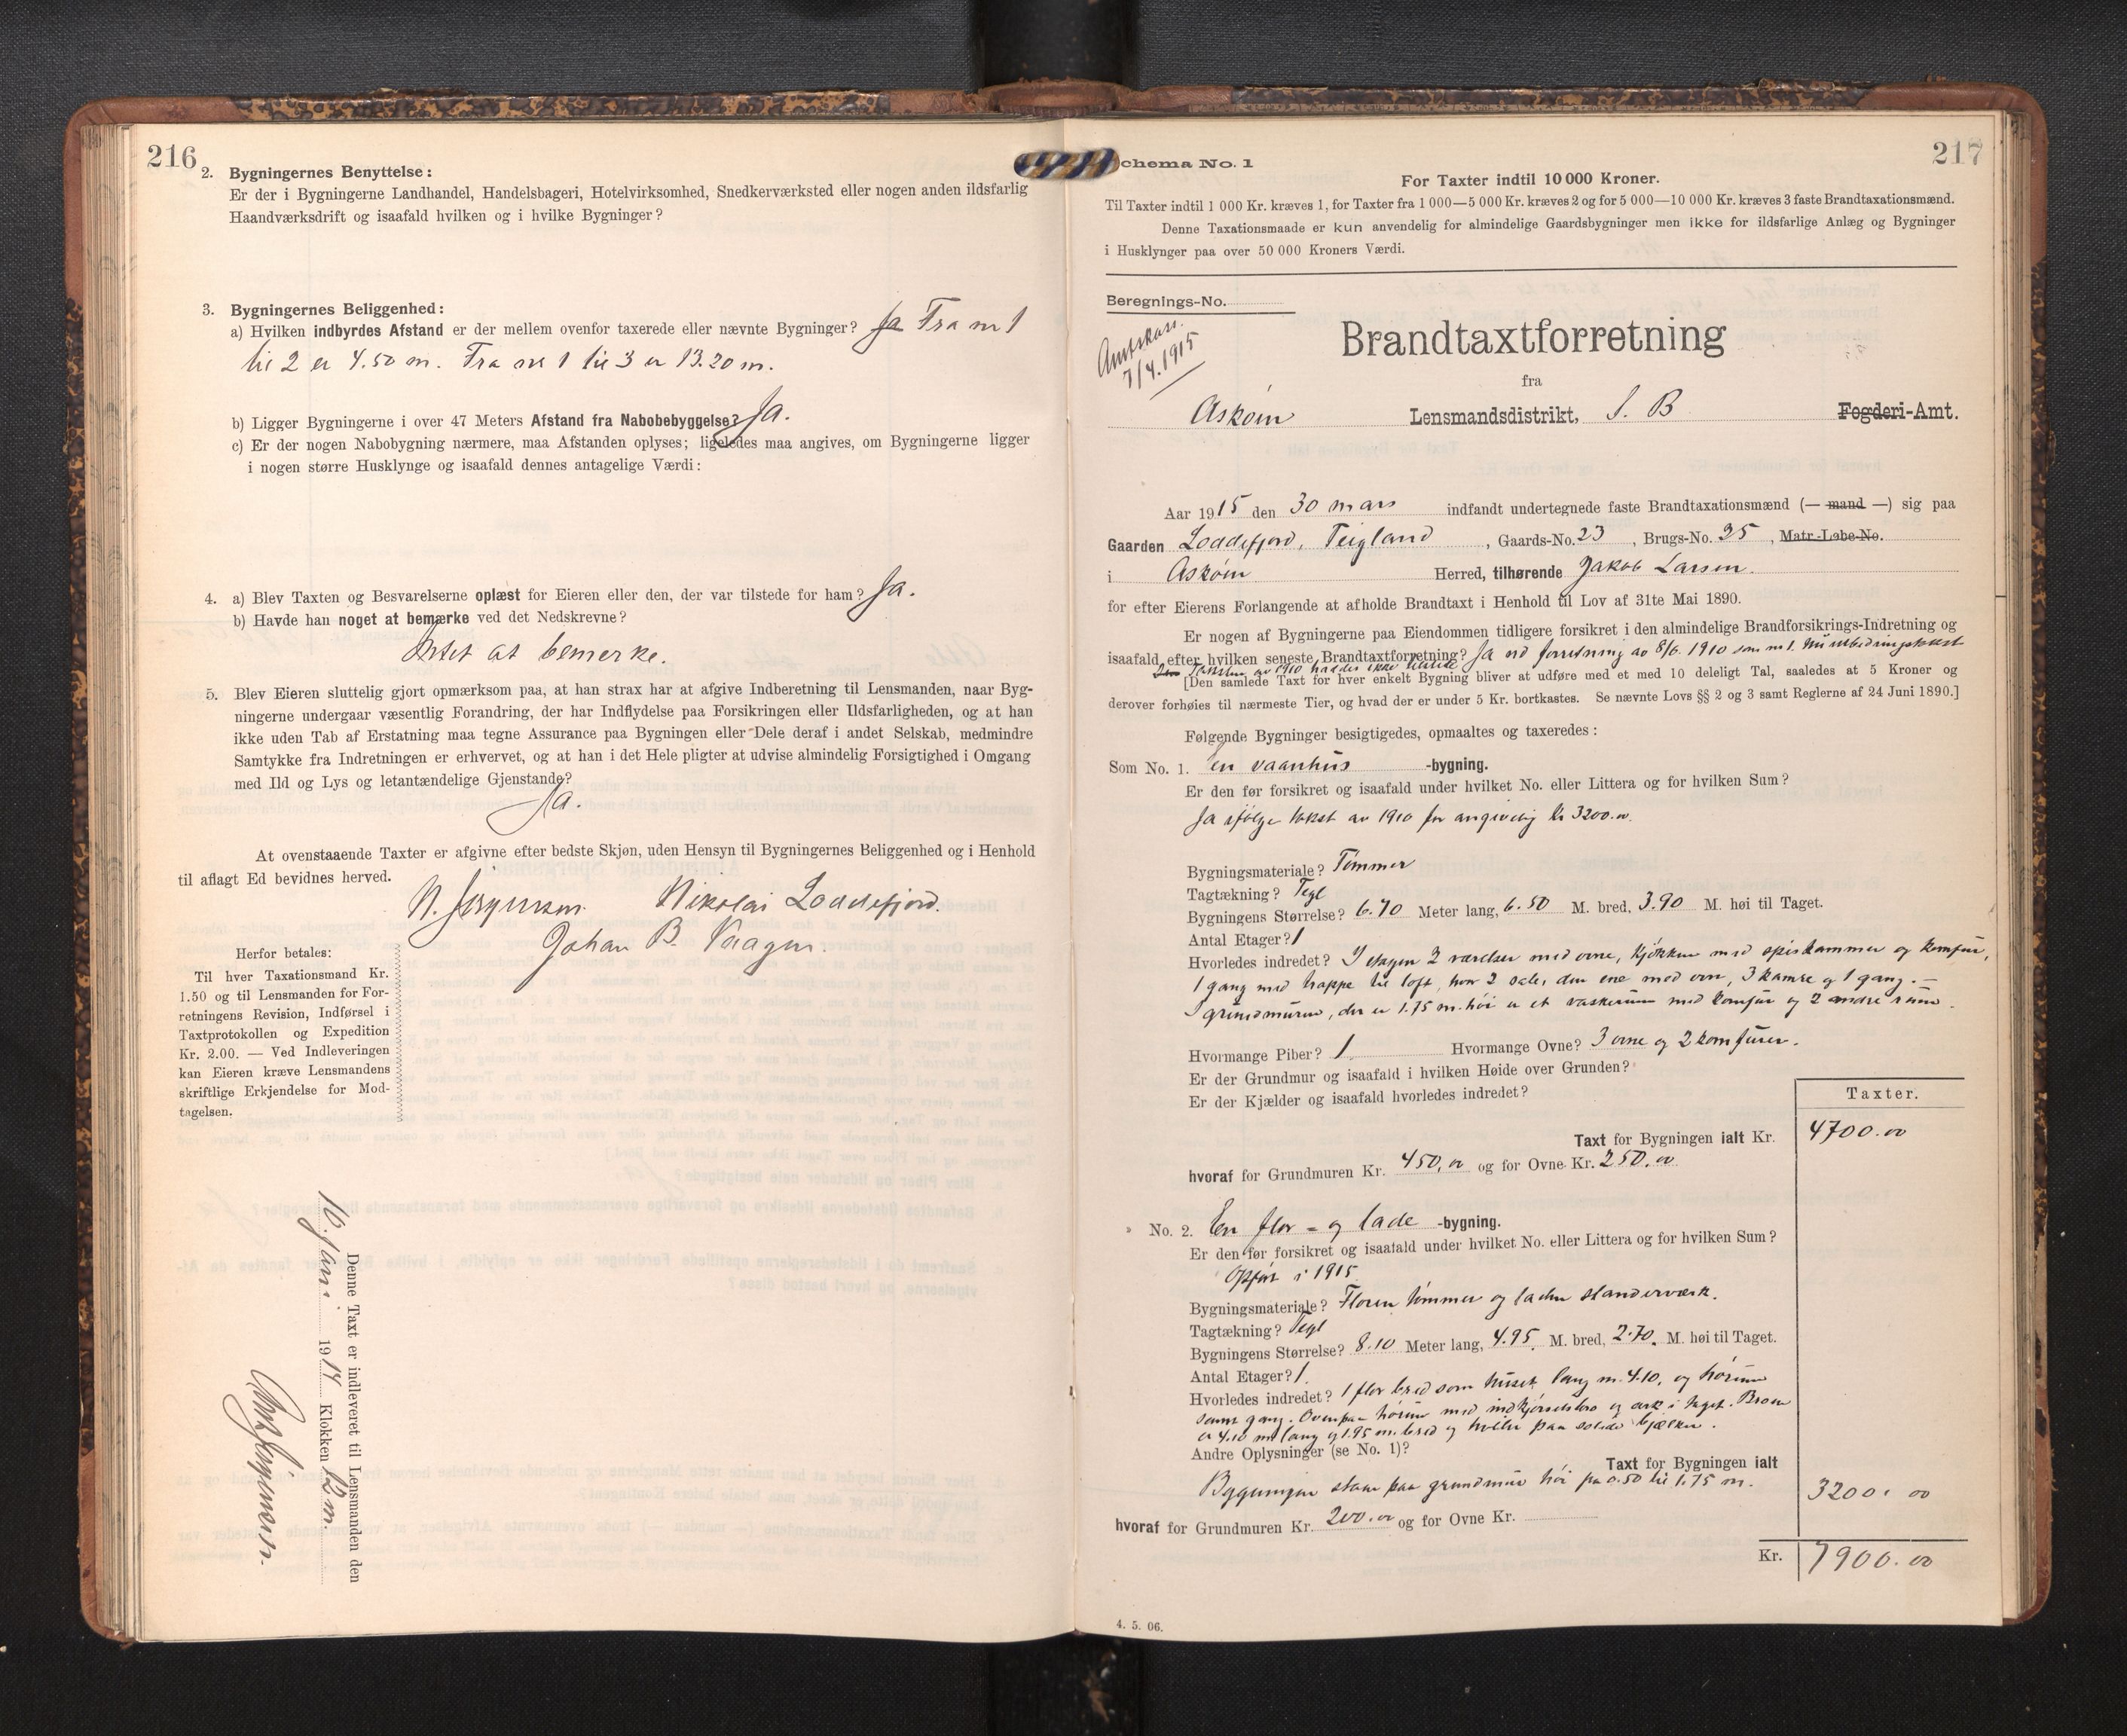 216
2. Bygningernes Benyttelse:
Er der i Bygningerne Landhandel, Handelsbageri, Hotelvirksomhed, Snedkerværksted eller nogen anden ildsfarlig
Haandværksdrift og isaafald hvilken og i hvilke Bygninger?
3. Bygningernes Beliggenhed:
a) Hvilken indbyrdes Afstand er der mellem ovenfor taxerede eller nævnte Bygninger? Ja Fra nr 1
til 2 er 4.50 m. Fra nr 1 til 3 er 13.20 m.
b) Ligger Bygningerne i over 47 Meters Afstand fra Nabobebyggelse? Ja.
c) Er der nogen Nabobygning nærmere, maa Afstanden oplyses; ligeledes maa angives, om Bygningerne ligger
i nogen større Husklynge og isaafald dennes antagelige Værdi:
4. a) Blev Taxten og Besvarelserne oplæst for Eieren eller den, der var tilstede for ham? Ja.
b) Havde han noget at bemærke ved det Nedskrevne?
Intet at bemerke.
5. Blev Eieren sluttelig gjort opmærksom paa, at han strax har at afgive Indberetning til Lensmanden, naar Byg-
ningerne undergaar væsentlig Forandring, der har Indflydelse paa Forsikringen eller Ildsfarligheden, og at han
ikke uden Tab af Erstatning maa tegne Assurance paa Bygningen eller Dele deraf i andet Selskab, medmindre
Samtykke fra Indretningen er erhvervet, og at han i det Hele pligter at udvise almindelig Forsigtighed i Omgang
med Ild og Lys og letantændelige Gjenstande?
Ja.
At ovenstaaende Taxter er afgivne efter bedste Skjøn, uden Hensyn til Bygningernes Beliggenhed og i Henhold
til aflagt Ed bevidnes herved.
N. Jørgensen. Nikolai Loddefjord.
Johan B. Vaagen.
Herfor betales:
Til hver Taxationsmand Kr.
1.50 og til Lensmanden for For-
retningens Revision, Indførsel i
Taxtprotokollen og Expedition
Kr. 2.00. — Ved Indleveringen
kan Eieren kræve Lensmandens
skriftlige Erkjendelse for Mod-
tagelsen.
Denne Taxt er indleveret til Lensmanden den
10. Jan. 1914 Klokken 12 m.
217
chema No. 1
For Taxter indtil 10 000 Kroner.
Til Taxter indtil 1 000 Kr. kræves 1, for Taxter fra 1 000—5 000 Kr. kræves 2 og for 5 000—10 000 Kr. kræves 3 faste Brandtaxationsmænd.
Denne Taxationsmaade er kun anvendelig for almindelige Gaardsbygninger men ikke for ildsfarlige Anlæg og Bygninger
i Husklynger paa over 50 000 Kroners Værdi.
Beregnings-No.
Amtskass.
7/4.1915
Brandtaxtforretning
fra
Askøin Lensmandsdistrikt, S. B Fogderi-Amt.
Aar 1915 den 30 mars indfandt undertegnede faste Brandtaxationsmænd (— mand —) sig paa
Gaarden Loddefjord, Teigland, Gaards-No. 23, Brugs-No. 25, Matr.-Løbe-No.
i Askøin Herred, tilhørende Jakob Larsen.
for efter Eierens Forlangende at afholde Brandtaxt i Henhold til Lov af 31te Mai 1890.
Er nogen af Bygningerne paa Eiendommen tidligere forsikret i den almindelige Brandforsikrings-Indretning og
isaafald efter hvilken seneste Brandtaxtforretning? Ja ved forretning av 8/6. 1910 som nr 1.
av 1910 havdes ikke tilstede
[Den samlede Taxt for hver enkelt Bygning bliver at udføre med et med 10 deleligt Tal, saaledes at 5 Kroner og
derover forhøies til nærmeste Tier, og hvad der er under 5 Kr. bortkastes. Se nævnte Lovs §§ 2 og 3 samt Reglerne af 24 Juni 1890.]
Følgende Bygninger besigtigedes, opmaaltes og taxeredes:
Som No. 1. En vaanhus -bygning.
Er den før forsikret og isaafald under hvilket No. eller Littera og for hvilken Sum?
Ja ifølge takst av 1910 for angivelig kr 3200.00.
Bygningsmateriale? Tømmer
Tagtækning? Tegl
Bygningens Størrelse? 6.70 Meter lang, 6.50 M. bred, 3.90 M. høi til Taget.
Antal Etager? 1
Hvorledes indredet? I etagen 2 værelser med ovne, kjøkken med spiskammer og komfur,
1 gang med trappe til loft, hvor 2 sale, den ene med ovn, 3 kamre og 1 gang. —
I grundmuren, der er 1.75 m. høi er et vaskerum med komfur og 2 andre rum.
Hvormange Piber? 1. Hvormange Ovne? 3 ovne og 2 komfurer.
Er der Grundmur og isaafald i hvilken Høide over Grunden?
Er der Kjælder og isaafald hvorledes indredet?
Taxter.
Taxt for Bygningen ialt Kr. 4700.00
hvoraf for Grundmuren Kr. 450,00 og for Ovne Kr. 250.00
No. 2. En flor- og lade -bygning.
Er den før forsikret og isaafald under hvilket No. eller Littera og for hvilken Sum?
Opført i 1915
Bygningsmateriale? Floren tømmer og laden standerværk.
Tagtækning? Tegl
Bygningens Størrelse? 8.10 Meter lang, 4.95. M. bred, 2.70. M. høi til Taget.
Antal Etager? 1.
Hvorledes indredet? 1 flor bred som huset lang m. 4.10, og hørum
samt gang. Ovenpaa hørum med indkjørselsbro og ark i taget. Broen
er 4.10 m lang og 1.95 m. bred og hviler paa solide bjælker.
Andre Oplysninger (se No. 1)?
Taxt for Bygningen ialt
Bygningen staar paa grundmur høi fra 0.50 til 1.75 m. 3200.00
hvoraf for Grundmuren Kr. 200.00 og for Ovne Kr.
Kr. 7900.00
4. 5. 06.